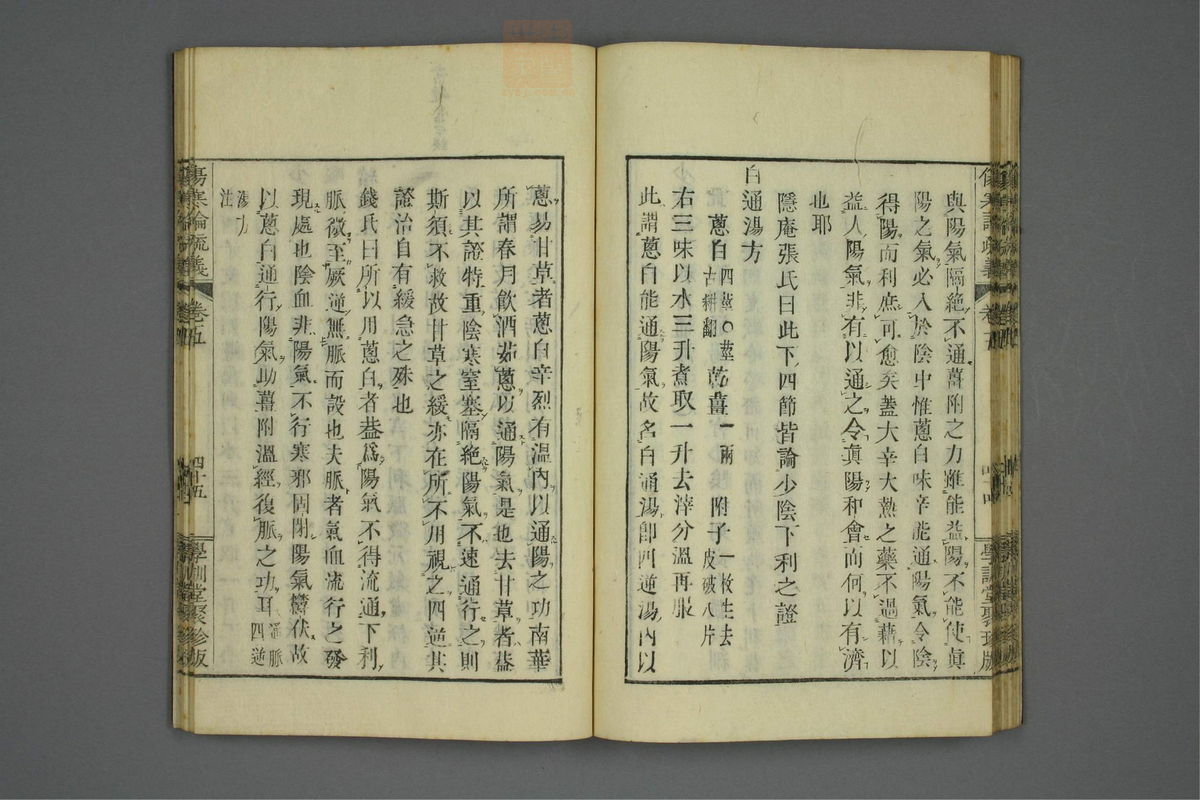 與陽氣隔絶不通薑附之力雖能益陽不能使眞
陽之氣必入於陰中惟蔥白味辛能通陽氣令陰
得陽而利庶可愈矣蓋大辛大熱之藥不過藉以
益人陽氣非有以通之令眞陽和會而何以有濟
也耶
隱庵張氏曰此下四節皆論少陰下利之證
白通湯方
蔥白四莖○莖古耕翻 乾薑一兩 附子一枚生去皮破八片
右三味以水三升煮取一升去滓分溫再服
此謂蔥白能通陽氣故名白通湯卽四逆湯內以
蔥易甘草者蔥白辛烈有溫內以通陽之功南華
所謂春月飲酒茹蔥以通陽氣是也去甘草者葢
以其證特重陰寒窒塞隔絶陽氣不速通行之則
斯須不救故甘草之緩亦在所不用視之四逆其
證治自有緩急之殊也
錢氏曰所以用蔥白者葢爲陽氣不得流通下利
脈微至厥逆無脈而設也夫脈者氣血流行之發
現處也陰血非陽氣不行寒邪固閉陽氣鬱伏故
以蔥白通行陽氣助薑附溫經復脈之功耳通脈四逆
湯方
注
傷寒論疏義
卷五
四十五
學訓堂聚珍版